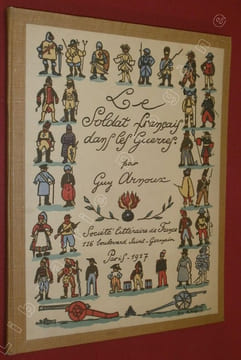 Le
Soldat français
dans les Guerres.
par
Guy Arnoux
Société Littéraire de France
116 boulevard Saint-Germain
Paris-1917